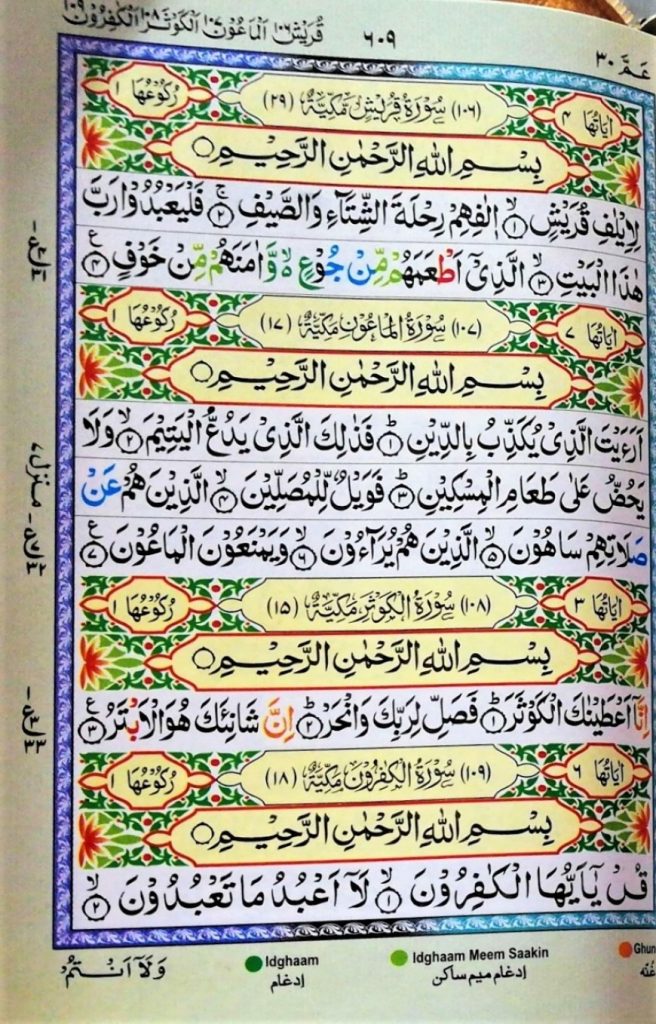 عمّ ۳۰ ٦٠٩ قُرَيْش ١٠٦ اَلْمَاعُوْن ١٠٧ اَلْكَوْثَر ١٠٨ اَلْكٰفِرُوْن ١٠٩
اٰيَاتُهَا ٤ (١٠٦) سُوْرَةُ قُرَيْشٍ مَّكِّيَّةٌ (٢٩) رُكُوْعُهَا ١
بِسْمِ اللّٰهِ الرَّحْمٰنِ الرَّحِيْمِ
لِاِيْلٰفِ قُرَيْشٍ ١ اٖلٰفِهِمْ رِحْلَةَ الشِّتَآءِ وَالصَّيْفِ ٢ فَلْيَعْبُدُوْا رَبَّ
هٰذَا الْبَيْتِ ٣ الَّذِيْٓ اَطْعَمَهُمْ مِّنْ جُوْعٍ ۙ وَّاٰمَنَهُمْ مِّنْ خَوْفٍ ٤
اٰيَاتُهَا ٧ (١٠٧) سُوْرَةُ الْمَاعُوْنِ مَكِّيَّةٌ (١٧) رُكُوْعُهَا ١
بِسْمِ اللّٰهِ الرَّحْمٰنِ الرَّحِيْمِ
اَرَءَيْتَ الَّذِيْ يُكَذِّبُ بِالدِّيْنِ ١ فَذٰلِكَ الَّذِيْ يَدُعُّ الْيَتِيْمَ ٢ وَلَا
يَحُضُّ عَلٰى طَعَامِ الْمِسْكِيْنِ ٣ فَوَيْلٌ لِّلْمُصَلِّيْنَ ٤ الَّذِيْنَ هُمْ عَنْ
صَلَاتِهِمْ سَاهُوْنَ ٥ الَّذِيْنَ هُمْ يُرَآءُوْنَ ٦ وَيَمْنَعُوْنَ الْمَاعُوْنَ ٧
اٰيَاتُهَا ٣ (١٠٨) سُوْرَةُ الْكَوْثَرِ مَكِّيَّةٌ (١٥) رُكُوْعُهَا ١
بِسْمِ اللّٰهِ الرَّحْمٰنِ الرَّحِيْمِ
اِنَّآ اَعْطَيْنٰكَ الْكَوْثَرَ ١ فَصَلِّ لِرَبِّكَ وَانْحَرْ ٢ اِنَّ شَانِئَكَ هُوَ الْاَبْتَرُ ٣
اٰيَاتُهَا ٦ (١٠٩) سُوْرَةُ الْكٰفِرُوْنَ مَكِّيَّةٌ (١٨) رُكُوْعُهَا ١
بِسْمِ اللّٰهِ الرَّحْمٰنِ الرَّحِيْمِ
قُلْ يٰٓاَيُّهَا الْكٰفِرُوْنَ ١ لَآ اَعْبُدُ مَا تَعْبُدُوْنَ ٢
وَلَآ اَنْتُمْ
Idghaam
ادغام
Idghaam Meem Saakin
ادغام میم ساکن
غنّه
منزل ٧